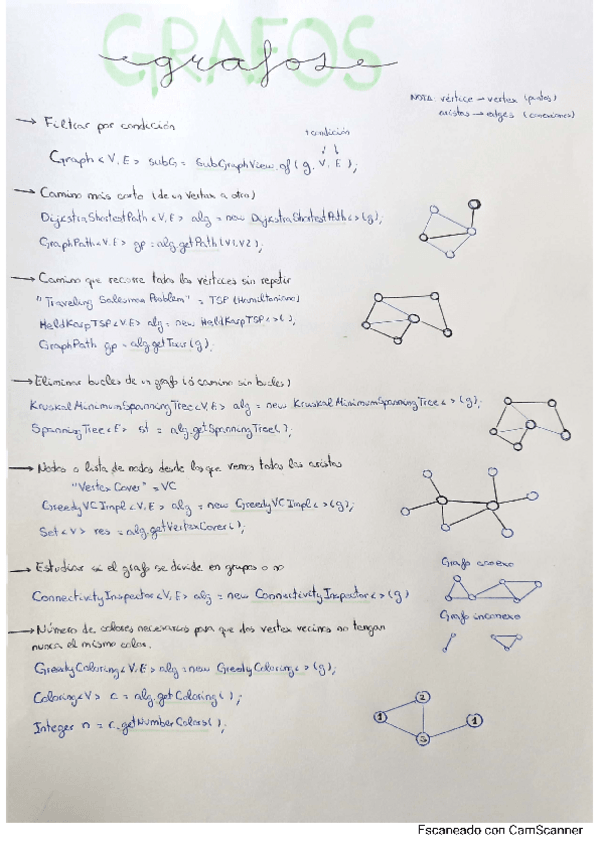 GRAFOS
grafos
NOTA: vértice → vertex (puntos)
aristas → edges (conexiones)
→ Filtrar por condición
+ condición
Graph<V,E> subG = SubGraphView.of(g, V, E);
→ Camino más corto (de un vertex a otro)
DijkstraShortestPath<V,E> alg = new DijkstraShortestPath<>(g);
GraphPath<V,E> gp = alg.getPath(V1,V2);
→ Camino que recorre todos los vértices sin repetir
"Traveling Salesman Problem" = TSP (Hamiltoniano)
HeldKarpTSP<V,E> alg = new HeldKarpTSP<>();
GraphPath gp = alg.getTour(g);
→ Eliminar bucles de un grafo (ó camino sin bucles)
KruskalMinimumSpanningTree<V,E> alg = new KruskalMinimumSpanningTree<>(g);
SpanningTree<E> st = alg.getSpanningTree();
→ Nodos o lista de nodos desde los que vemos todas las aristas
"Vertex Cover" = VC
GreedyVCImpl<V,E> alg = new GreedyVCImpl<>(g);
Set<V> res = alg.getVertexCover();
→ Estudiar si el grafo se divide en grupos o no
Grafo conexo
ConnectivityInspector<V,E> alg = new ConnectivityInspector<>(g)
Grafo inconexo
→ Número de colores necesarios para que dos vertex vecinos no tengan
nunca el mismo color.
GreedyColoring<V,E> alg = new GreedyColoring<>(g);
Coloring<V> c = alg.getColoring();
Integer n = c.getNumberColors();
2
1
1
3
Escaneado con CamScanner